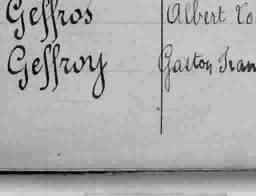 Geffros Albert
Geffroy Gaston